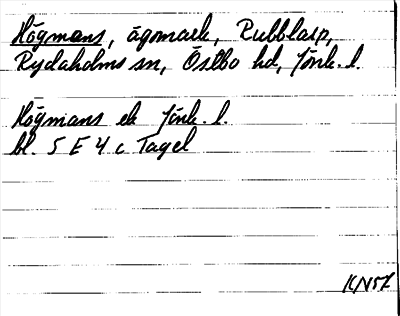 Högmans, ägomark, Rubblarp,
Rydaholms sn, Östbo hd, Jönk. l.
Högmans ek Jönk. l.
bl. 5 E 4 c Tagel
KN57